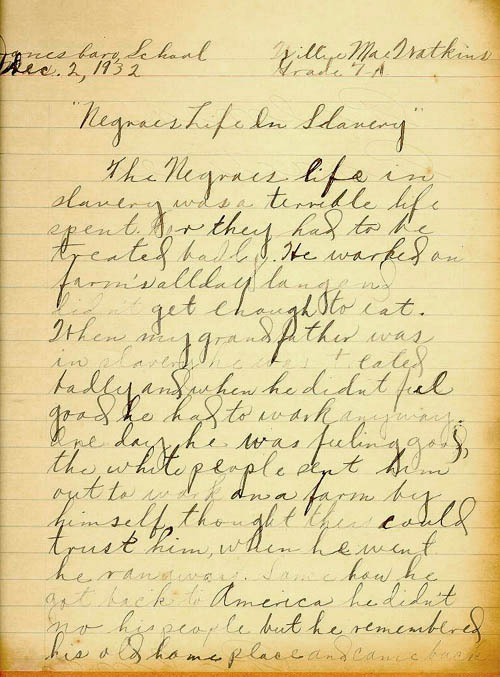 Jonesboro, School Willye Mae Watkins
Dec. 2, 1932 Grade 7-A
"Negroes Life In Slavery"
The Negroes life in
slavery was a terrible life
spent. For they had to be
treated badly. He worked on
farm's all day long and
didn't get enough to eat.
When my grandfather was
in slavery he was treated
badly and when he didn't feel
good he had to work anyway.
One day he was feeling good,
the white people sent him
out to work on a farm by
himself, thought they could
trust him, when he went
he ran away. Some how he
got back to America he didn't
no his people but he remembered
his old home place and came back